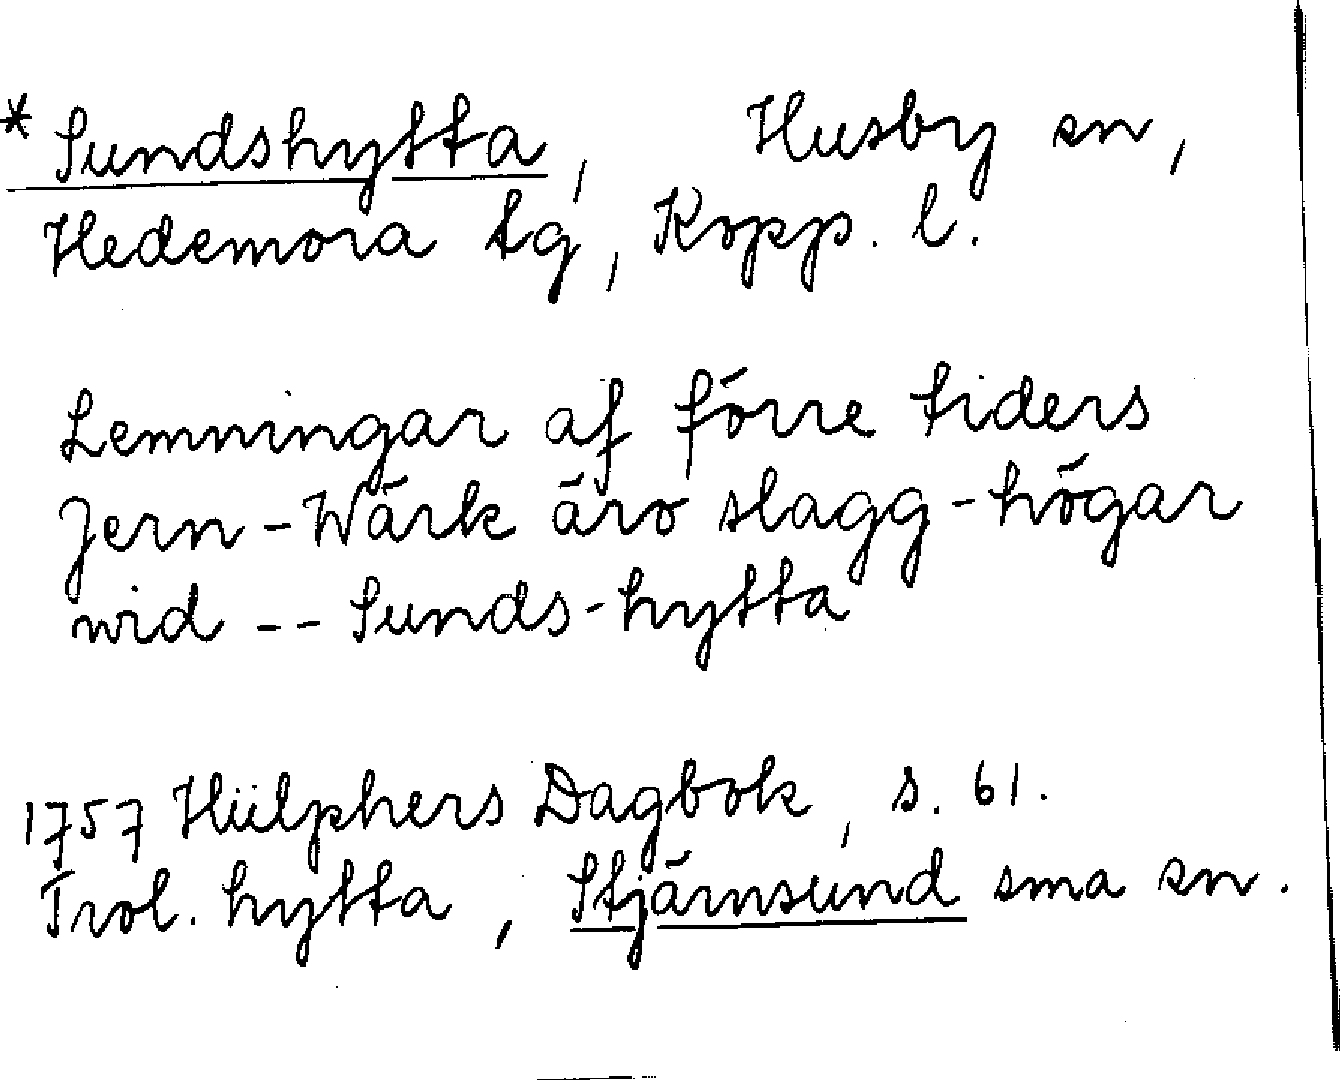 * Sundshytta, Husby sn,
Hedemora tg, Kopp. l.
Lemningar af förre tiders
Jern-Wärk äro slagg-högar
wid -- Sunds-hytta
1757 Hülphers Dagbok, s. 61.
Trol. hytta, Stjärnsund sma sn.